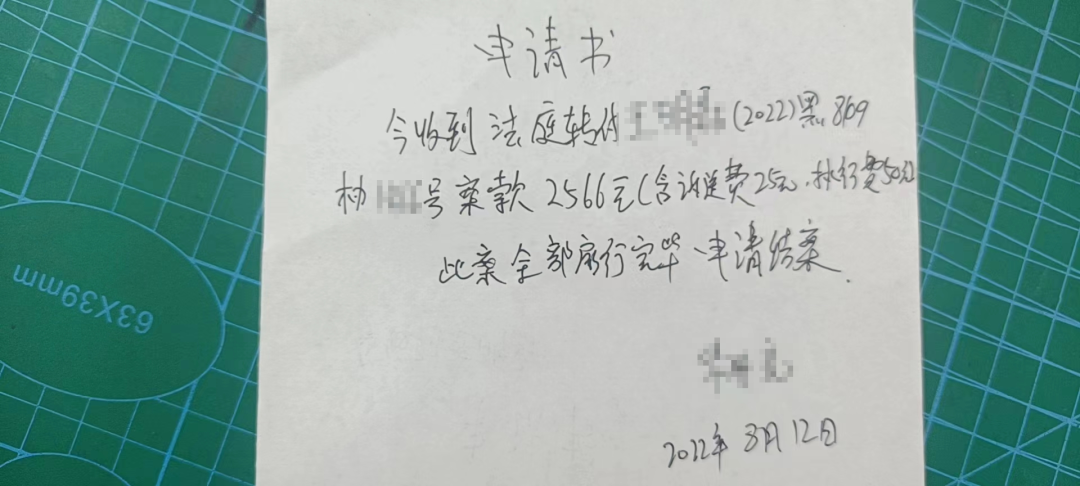 申请书
今收到法庭转付(2022)黑8109
执号案款2566元(含诉讼费25元、执行费50元
此案全部履行完毕、申请结案.
2022年8月12日
63X39mm